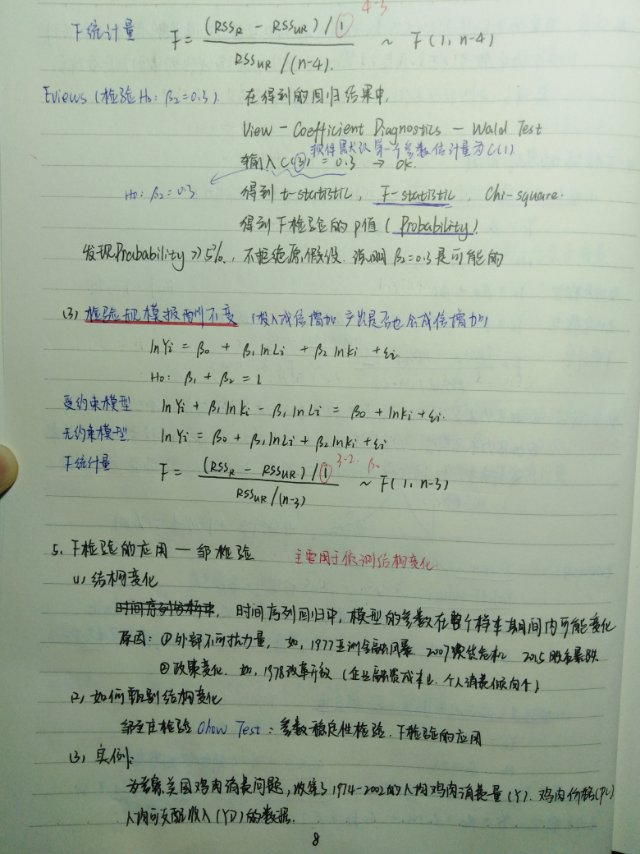 4-3
F统计量 F = (RSS_R - RSS_UR)/① / RSS_UR/(n-4) ~ F(1, n-4)
Eviews (检验H0: β2=0.3) 在得到的回归结果中,
View - Coefficient Diagnostics - Wald Test
软件默认第一个参数估计量为C(1)
输入C(3) = 0.3 → ok.
H0: β2=0.3 得到 t-statistic, F-statistic, Chi-square.
得到F检验的p值 (Probability)
发现Probability >> 5%, 不拒绝原假设, 说明 β2=0.3是可能的
(3) 检验规模报酬不变 (投入成倍增加 产出是否也会成倍增加)
lnYi = β0 + β1lnLi + β2lnKi + εi
H0: β1 + β2 = 1
受约束模型 lnYi + β1lnKi - β1lnLi = β0 + lnKi + εi.
无约束模型 lnYi = β0 + β1lnLi + β2lnKi + εi
3-2. β0
F统计量 F = (RSS_R - RSS_UR)/① / RSS_UR/(n-3) ~ F(1, n-3)
5. F检验的应用 — 邹检验 主要用于侦测结构变化
(1) 结构变化
时间序列回归中, 模型的参数在整个样本期间内可能变化
原因: ①外部不可抗力量, 如, 1977亚洲金融风暴 2007次贷危机 2015股市暴跌
②政策变化, 如, 1978改革开放 (企业融资成本、个人消费倾向个)
(2) 如何甄别结构变化
邹至庄检验 Chow Test: 参数稳定性检验, F检验的应用
(3) 实例:
为考察美国鸡肉消费问题, 收集了1974-2002的人均鸡肉消费量(Y), 鸡肉价格(PC)
人均可支配收入(YD)的数据.
8